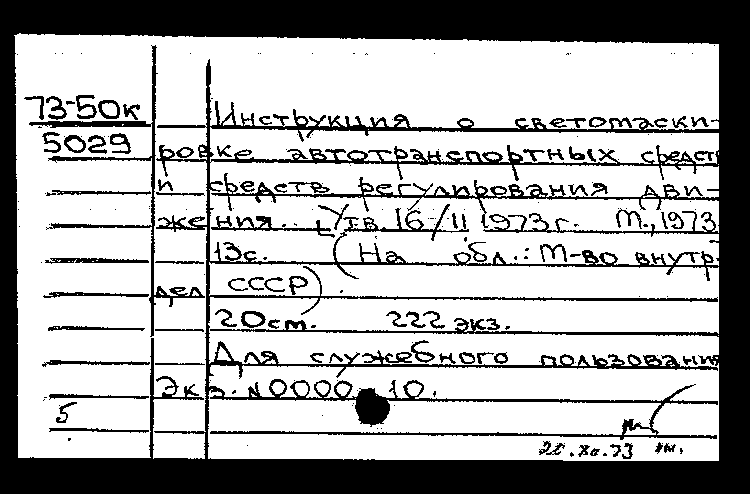 73-50к
5029
Инструкция о светомаски-
ровке автотранспортных средств
и средств регулирования дви-
жения. Утв. 16/II 1973 г. М., 1973
13с. (На обл.: М-во внутр.
дел СССР).
20 см. 222 экз.
Для служебного пользования
Экз. N 0000 10.
5